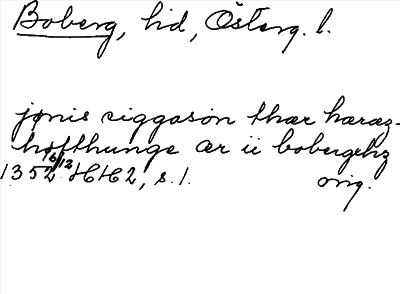 Boberg, hd, Österg. l.
jønis siggason thær hæraz-
høfthunge ær ii bobergshz
1352 16/12 HH2, s. 1. orig.